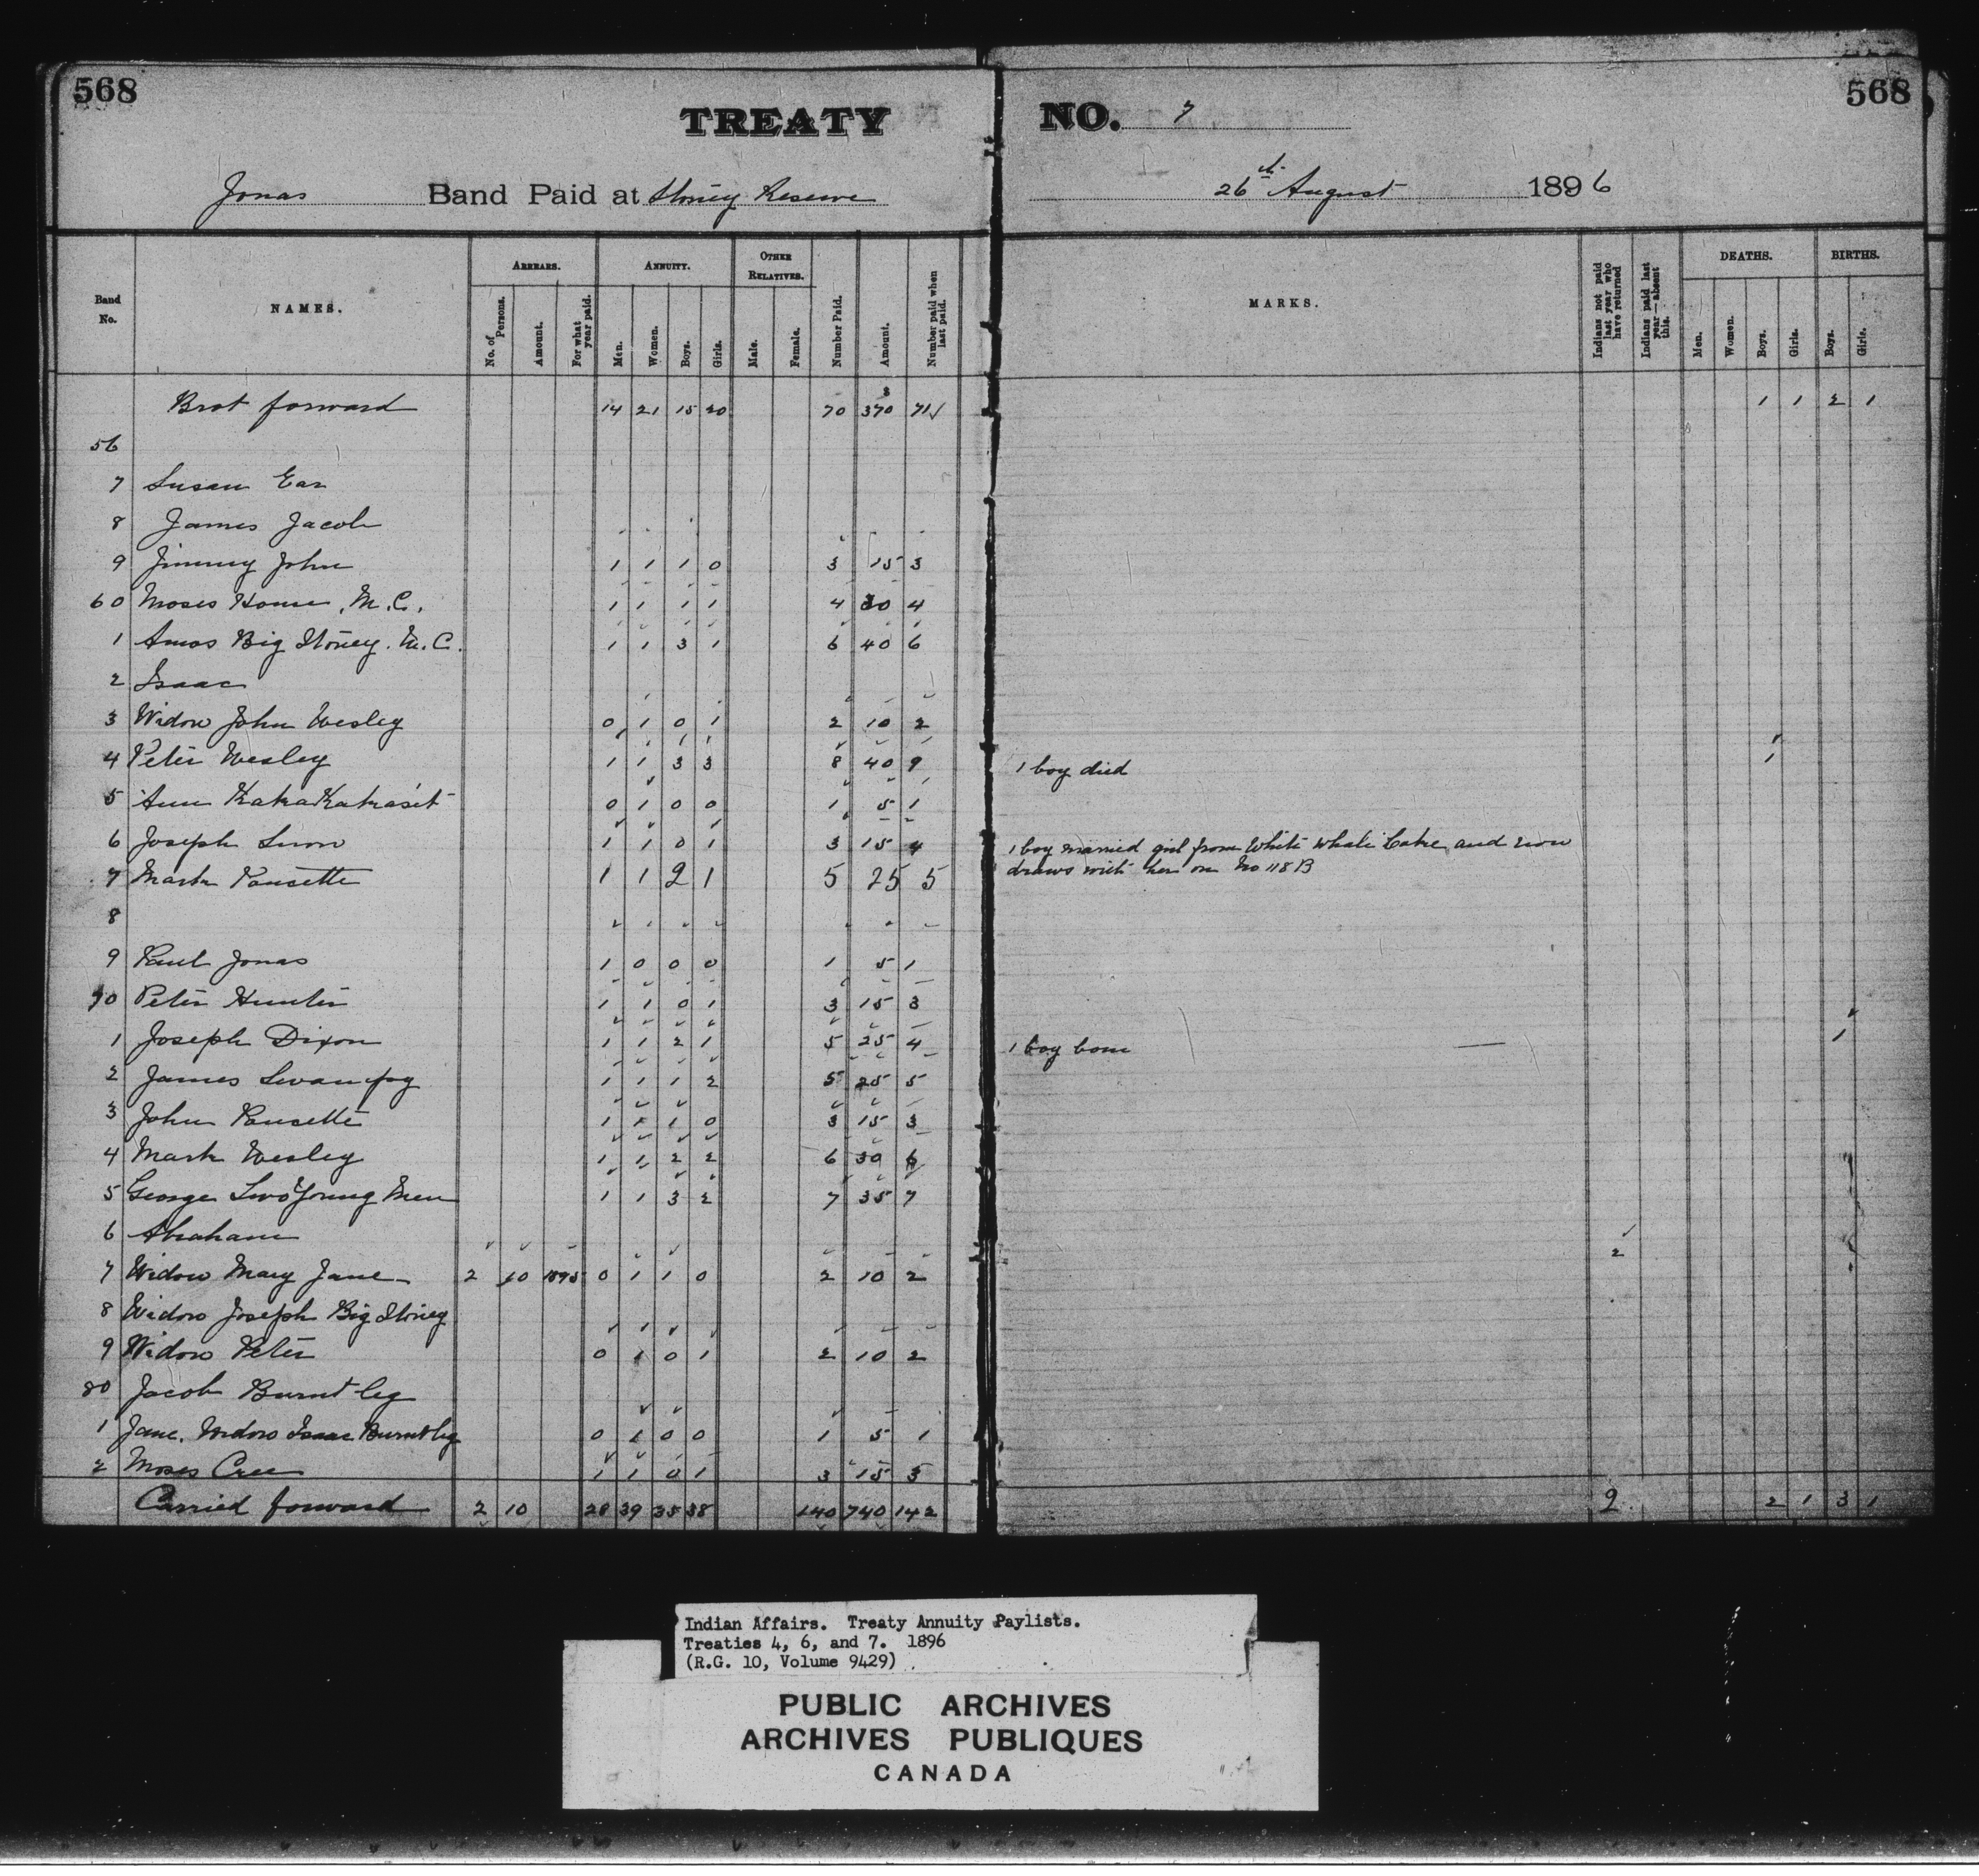 568
568
TREATY NO. 7
Jonas Band Paid at Stoney Reserve 26th August 1896
Band No.
NAMES.
ARREARS.
No. of Persons.
Amount.
For what year paid.
ANNUITY.
Men.
Women.
Boys.
Girls.
OTHER RELATIVES.
Male.
Female.
Number Paid.
Amount.
Number paid when last paid.
MARKS.
Indians not paid last year who have returned
Indians paid last year—absent this.
DEATHS.
Men.
Women.
Boys.
Girls.
BIRTHS.
Boys.
Girls.
Brot forward 14 21 15 20 70 370 71 1 1 2 1
56
7 Susan Ear
8 James Jacob
9 Jimmy John 1 1 1 0 3 15 3
60 Moses House, M.C. 1 1 1 1 4 30 4
1 Amos Big Stoney. M.C. 1 1 3 1 6 40 6
2 Isaac
3 Widow John Wesley 0 1 0 1 2 10 2
4 Peter Wesley 1 1 3 3 8 40 9 1 boy died 1
5 Ann 0 1 0 0 1 5 1
6 Joseph 1 1 0 1 3 15 4 1 boy married girl from White Whale Lake and now
7 Mark Pousette 1 1 2 1 5 25 5 draws with her on No 118 B
8
9 Paul Jonas 1 0 0 0 1 5 1
70 Peter Hunter 1 1 0 1 3 15 3
1 Joseph Dixon 1 1 2 1 5 25 4 1 boy born 1
2 James Swampy 1 1 1 2 5 25 5
3 John Pousette 1 1 1 0 3 15 3
4 Mark Wesley 1 1 2 2 6 30 6
5 George Two Young Men 1 1 3 2 7 35 7
6 Abraham
7 Widow Mary Jane 2 10 1895 0 1 1 0 2 10 2 2
8 Widow Joseph Big Stoney
9 Widow Peter 0 1 0 1 2 10 2
80 Jacob Burnt leg
1 Jane. Widow Isaac Burnt leg 0 1 0 0 1 5 1
2 Moses Cree 1 1 0 1 3 15 3
Carried forward 2 10 28 39 35 38 140 740 142 2 2 1 3 1
Indian Affairs. Treaty Annuity Paylists.
Treaties 4, 6, and 7. 1896
(R.G. 10, Volume 9429)
PUBLIC ARCHIVES
ARCHIVES PUBLIQUES
CANADA